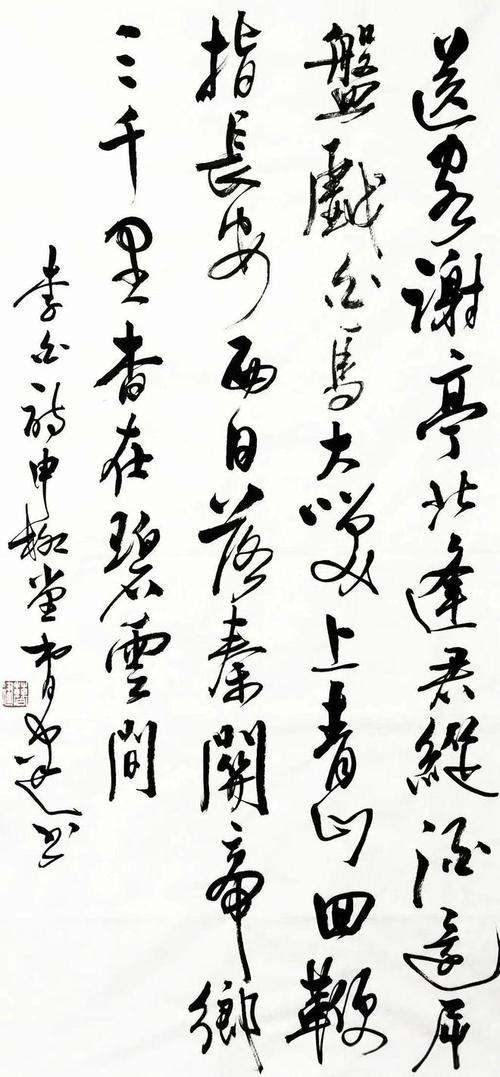 送客謝亭北逢君縱酒還屈
盤戲白馬大笑上青山回鞭
指長安西日落秦關帝鄉
三千里杳在碧雲間
李白詩申柳堂書